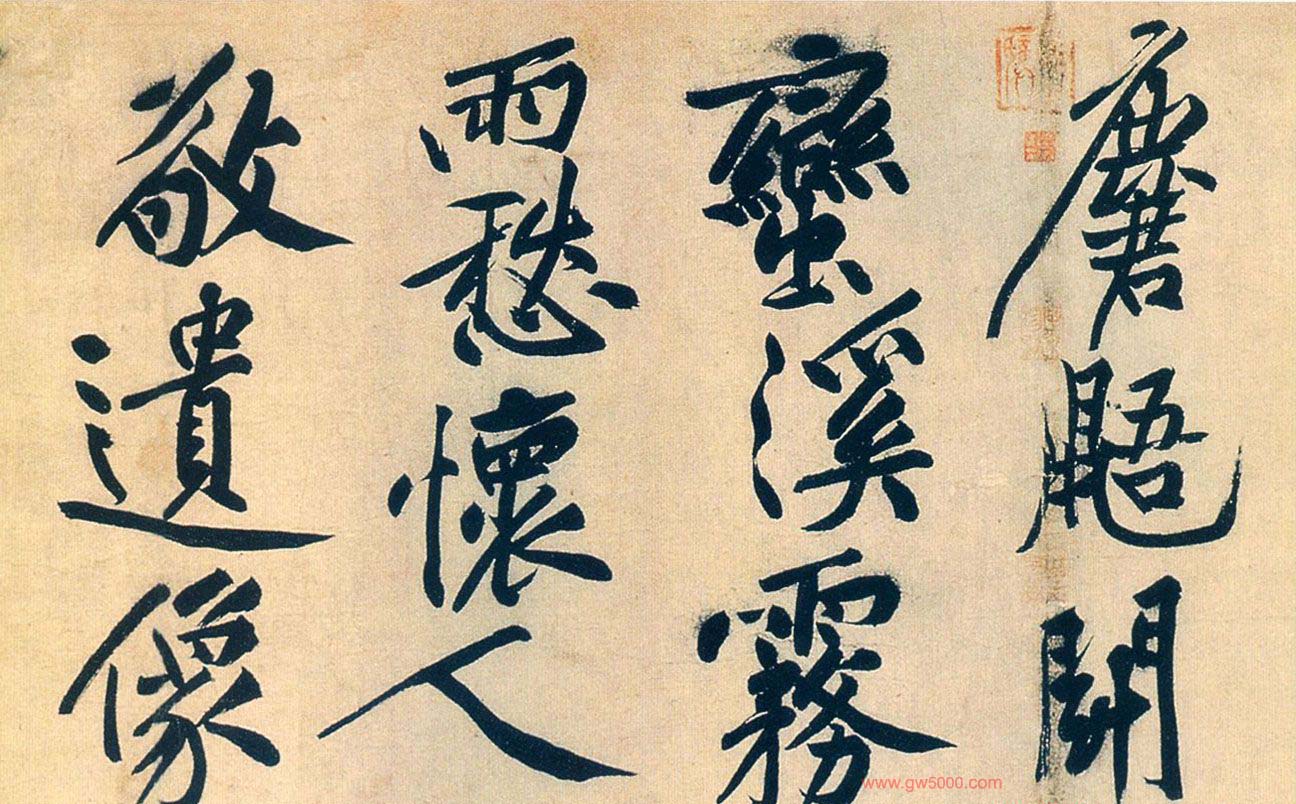 麏鼯鬥
蠻溪霧
雨愁懷人
敬遺像
www.gw5000.com